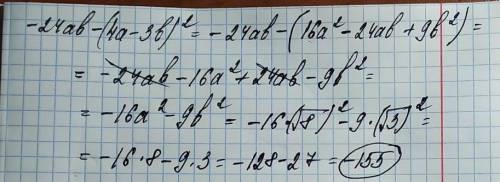 -24ab-(4a-3b)² = -24ab-(16a²-24ab+9b²)=
= -24ab-16a²+24ab-9b²=
= -16a²-9b² = -16·(√8)²-9·(√3)²=
= -16·8-9·3=-128-27=-155